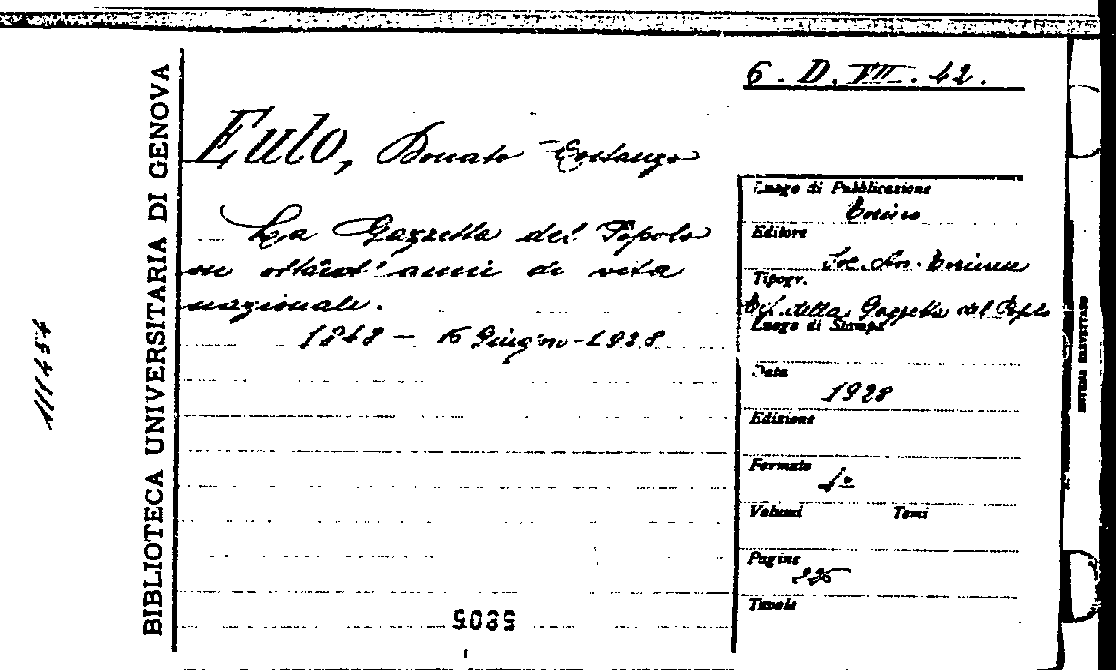 6. D. VII. 42.
BIBLIOTECA UNIVERSITARIA DI GENOVA
111454
Eulo, Donato Costanzo
La Gazzetta del Popolo
in ottant' anni di vita
nazionale.
1848 - 16 Giugno - 1928
Luogo di Pubblicazione
Torino
Editore
Soc. An. Torinese
Tipogr.
Tip. della Gazzetta del Popolo
Luogo di Stampa
Data
1928
Edizione
Formato
Volumi Tomi
Pagine
Tavole
5085